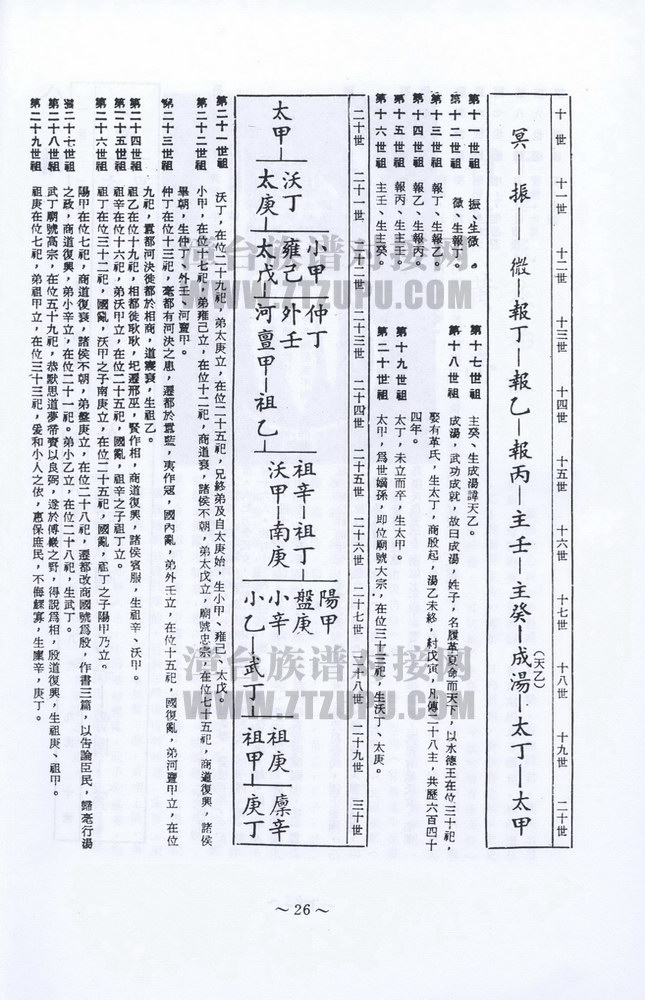 十世 十一世 十二世 十三世 十四世 十五世 十六世 十七世 十八世 十九世 二十世
冥—振—微—報丁—報乙—報丙—主壬—主癸—成湯—太丁—太甲
(天乙)
第十一世祖 振、生微。
第十二世祖 微、生報丁。
第十三世祖 報丁、生報乙。
第十四世祖 報乙、生報丙。
第十五世祖 報丙、生主壬。
第十六世祖 主壬、生主癸。
第十七世祖 主癸、生成湯諱天乙。
第十八世祖 成湯，武功成就，故曰成湯，姓子，名履革夏命而天下，以水德王在位三十祀，
娶有莘氏，生太丁，商殷起，湯乙未終，紂戊寅，凡傳二十八主，共歷六百四十
四年。
第十九世祖 太丁，未立而卒，生太甲。
第二十世祖 太甲，爲世嫡孫，即位廟號大宗，在位三十三祀，生沃丁、太庚。
二十世 二十一世 二十二世 二十三世 二十四世 二十五世 二十六世 二十七世 二十八世 二十九世 三十世
太甲
沃丁
太庚
小甲
雍己
太戊
仲丁
外壬
河亶甲—祖乙
祖辛—祖丁
沃甲—南庚
陽甲
盤庚
小辛
小乙—武丁
祖庚
祖甲
廩辛
庚丁
第二十一世祖 沃丁，在位二十九祀，弟太庚立，在位二十五祀，兄終弟及自太庚始，生小甲、雍己、太戊。
第二十二世祖 小甲，在位十七祀，弟雍己立，在位十二祀，商道衰，諸侯不朝，弟太戊立，廟號忠宗，在位七十五祀，商道復興，諸侯
畢朝，生仲丁、外壬、河亶甲。
第二十三世祖 仲丁在位十三祀，亳都有河決之患，遷都於囂藍，夷作寇，國內亂，弟外壬立，在位十五祀，國復亂，弟河亶甲立，在位
九祀，囂都河決徙都於相商，道寖衰，生祖乙。
第二十四世祖 祖乙在位十九祀，相都徙耿耿，圯遷邢巫，賢作相，商道復興，諸侯賓服，生祖辛、沃甲。
第二十五世祖 祖辛在位十六祀，弟沃甲立，在位二十五祀，國亂，祖辛之子祖丁立。
第二十六世祖 祖丁在位三十二祀，國亂，沃甲之子南庚立，在位二十五祀，國亂，祖丁之子陽甲乃立。
第二十七世祖 陽甲在位七祀，商道復衰，諸侯不朝，弟盤庚立，在位二十八祀，遷都改商國號爲殷，作書三篇，以告諭臣民，歸亳行湯
之政，商道復興，弟小辛立，在位二十一祀。弟小乙立，在位二十八祀，生武丁。
第二十八世祖 武丁廟號高宗，在位五十九祀，恭默思道夢帝賚以良弼，遂於傅巖之野，得說爲相，殷道復興，生祖庚、祖甲。
第二十九世祖 祖庚在位七祀，弟祖甲立，在位三十三祀，爰和小人之依，惠保庶民，不侮鰥寡，生廩辛，庚丁。
～26～
族谱对接网
WWW.ZTZUPU.COM
族谱对接网
WWW.ZTZUPU.COM